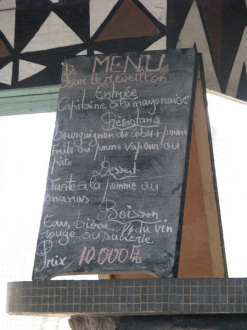 MENU
Pour le reveillon
Entrée
Capitaine à la mayonaise
Résistance
Bourguignon de cobe + pomme
Frite ou pomme vapeur ou
pate
Dessert
Tarte a la pomme ou
ananas
Boisson
Eau, bière, 1/4 du vin
rouge ou sucrerie
Prix 10.000 F